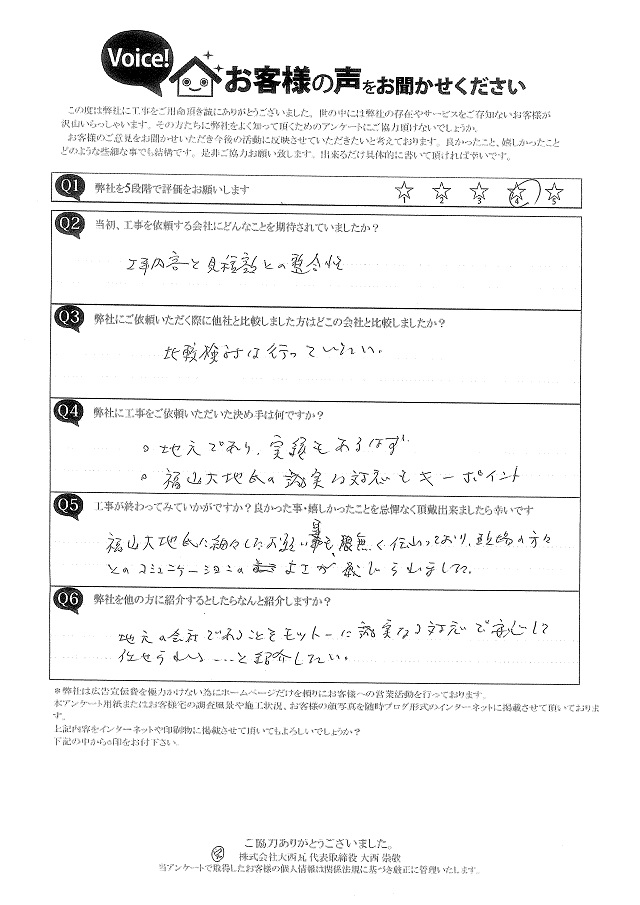 Voice!
お客様の声をお聞かせください
この度は弊社に工事をご用命頂き誠にありがとうございました。世の中には弊社の存在やサービスをご存知ないお客様が
沢山いらっしゃいます。その方たちに弊社をよく知って頂くためのアンケートにご協力頂けないでしょうか。
お客様のご意見をお聞かせいただき今後の活動に反映させていただきたいと考えております。良かったこと、嬉しかったこと
どのような些細な事でも結構です。是非ご協力お願い致します。出来るだけ具体的に書いて頂ければ幸いです。
Q1 弊社を5段階で評価をお願いします 1 2 3 4 5
Q2 当初、工事を依頼する会社にどんなことを期待されていましたか?
工事内容と見積額との整合性
Q3 弊社にご依頼いただく際に他社と比較しました方はどこの会社と比較しましたか?
比較検討は行っていない。
Q4 弊社に工事をご依頼いただいた決め手は何ですか?
○地元であり、実績もあるはず
○福山大地氏の誠実な対応もキーポイント
Q5 工事が終わってみていかがですか?良かった事・嬉しかったことを忌憚なく頂戴出来ましたら幸いです
福山大地氏に細々したお願い事も、無く伝わっており、現場の方々
とのコミュニケーションのよさが感じられました。
Q6 弊社を他の方に紹介するとしたらなんと紹介しますか?
地元の会社であることをモットーに誠実なる対応で安心して
任せられる…と紹介したい。
※弊社は広告宣伝費を極力かけない為にホームページだけを頼りにお客様への営業活動を行っております。
本アンケート用紙またはお客様宅の調査風景や施工状況、お客様の顔写真を随時ブログ形式のインターネットに掲載させて頂いておりま
す。
上記内容をインターネットや印刷物に掲載させて頂いてもよろしいでしょうか?
下記の中から○印をお付下さい。
ご協力ありがとうございました。
株式会社大西瓦 代表取締役 大西 崇敬
当アンケートで取得したお客様の個人情報は関係法規に基づき厳正に管理いたします。